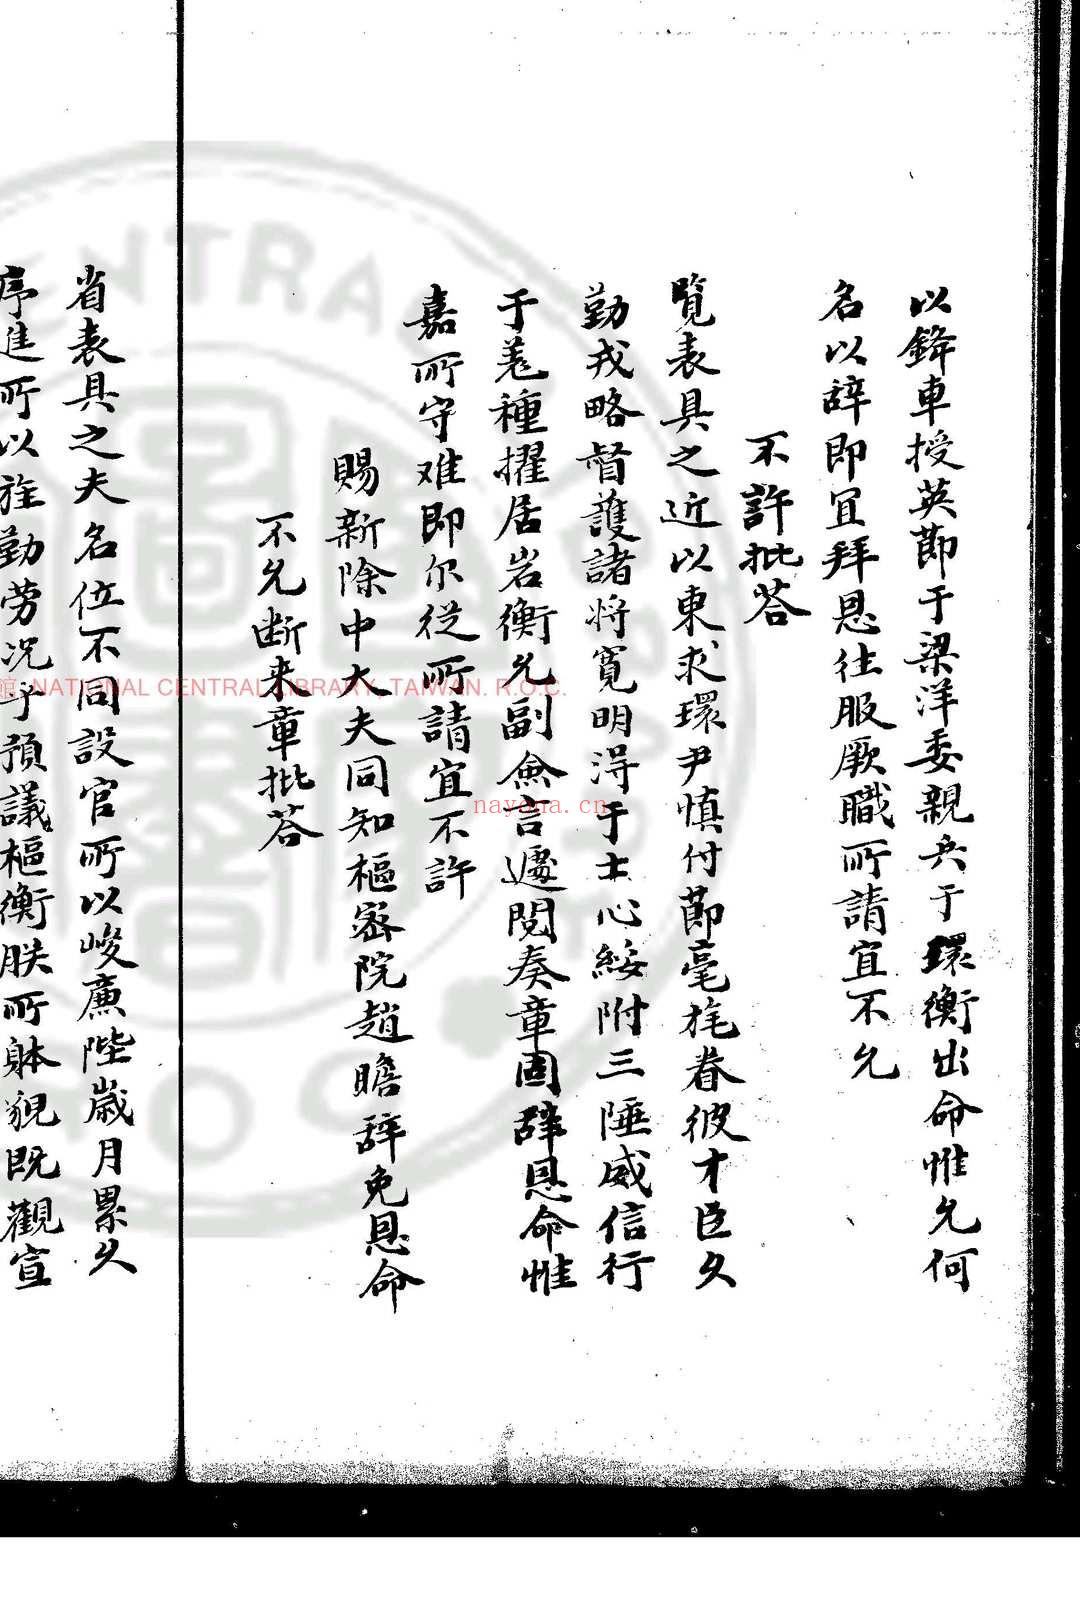 以鋒車授英節于梁洋委親兵于環衡出命惟允何
名以辭即宜拜恩往服厥職所請宜不允
不許批荅
覽表具之近以東求環尹慎付節毫旄眷彼才臣久
勤戎略督護諸将寛明淂于士心綏附三陲威信行
于羗種擢居岩衡允副僉言遽閱奏章固辭恩命惟
嘉所守难即尔従所請宜不許
賜新除中大夫同知樞宻院趙瞻辞免恩命
不允断来章批荅
省表具之夫名位不同設官所以峻廉陛歳月累久
序進所以旌勤劳况乎預議樞衡朕所躰貌既觀宣
館 NATIONAL CENTRAL LIBRARY, TAIWAN. R.O.C.
nayona.cn